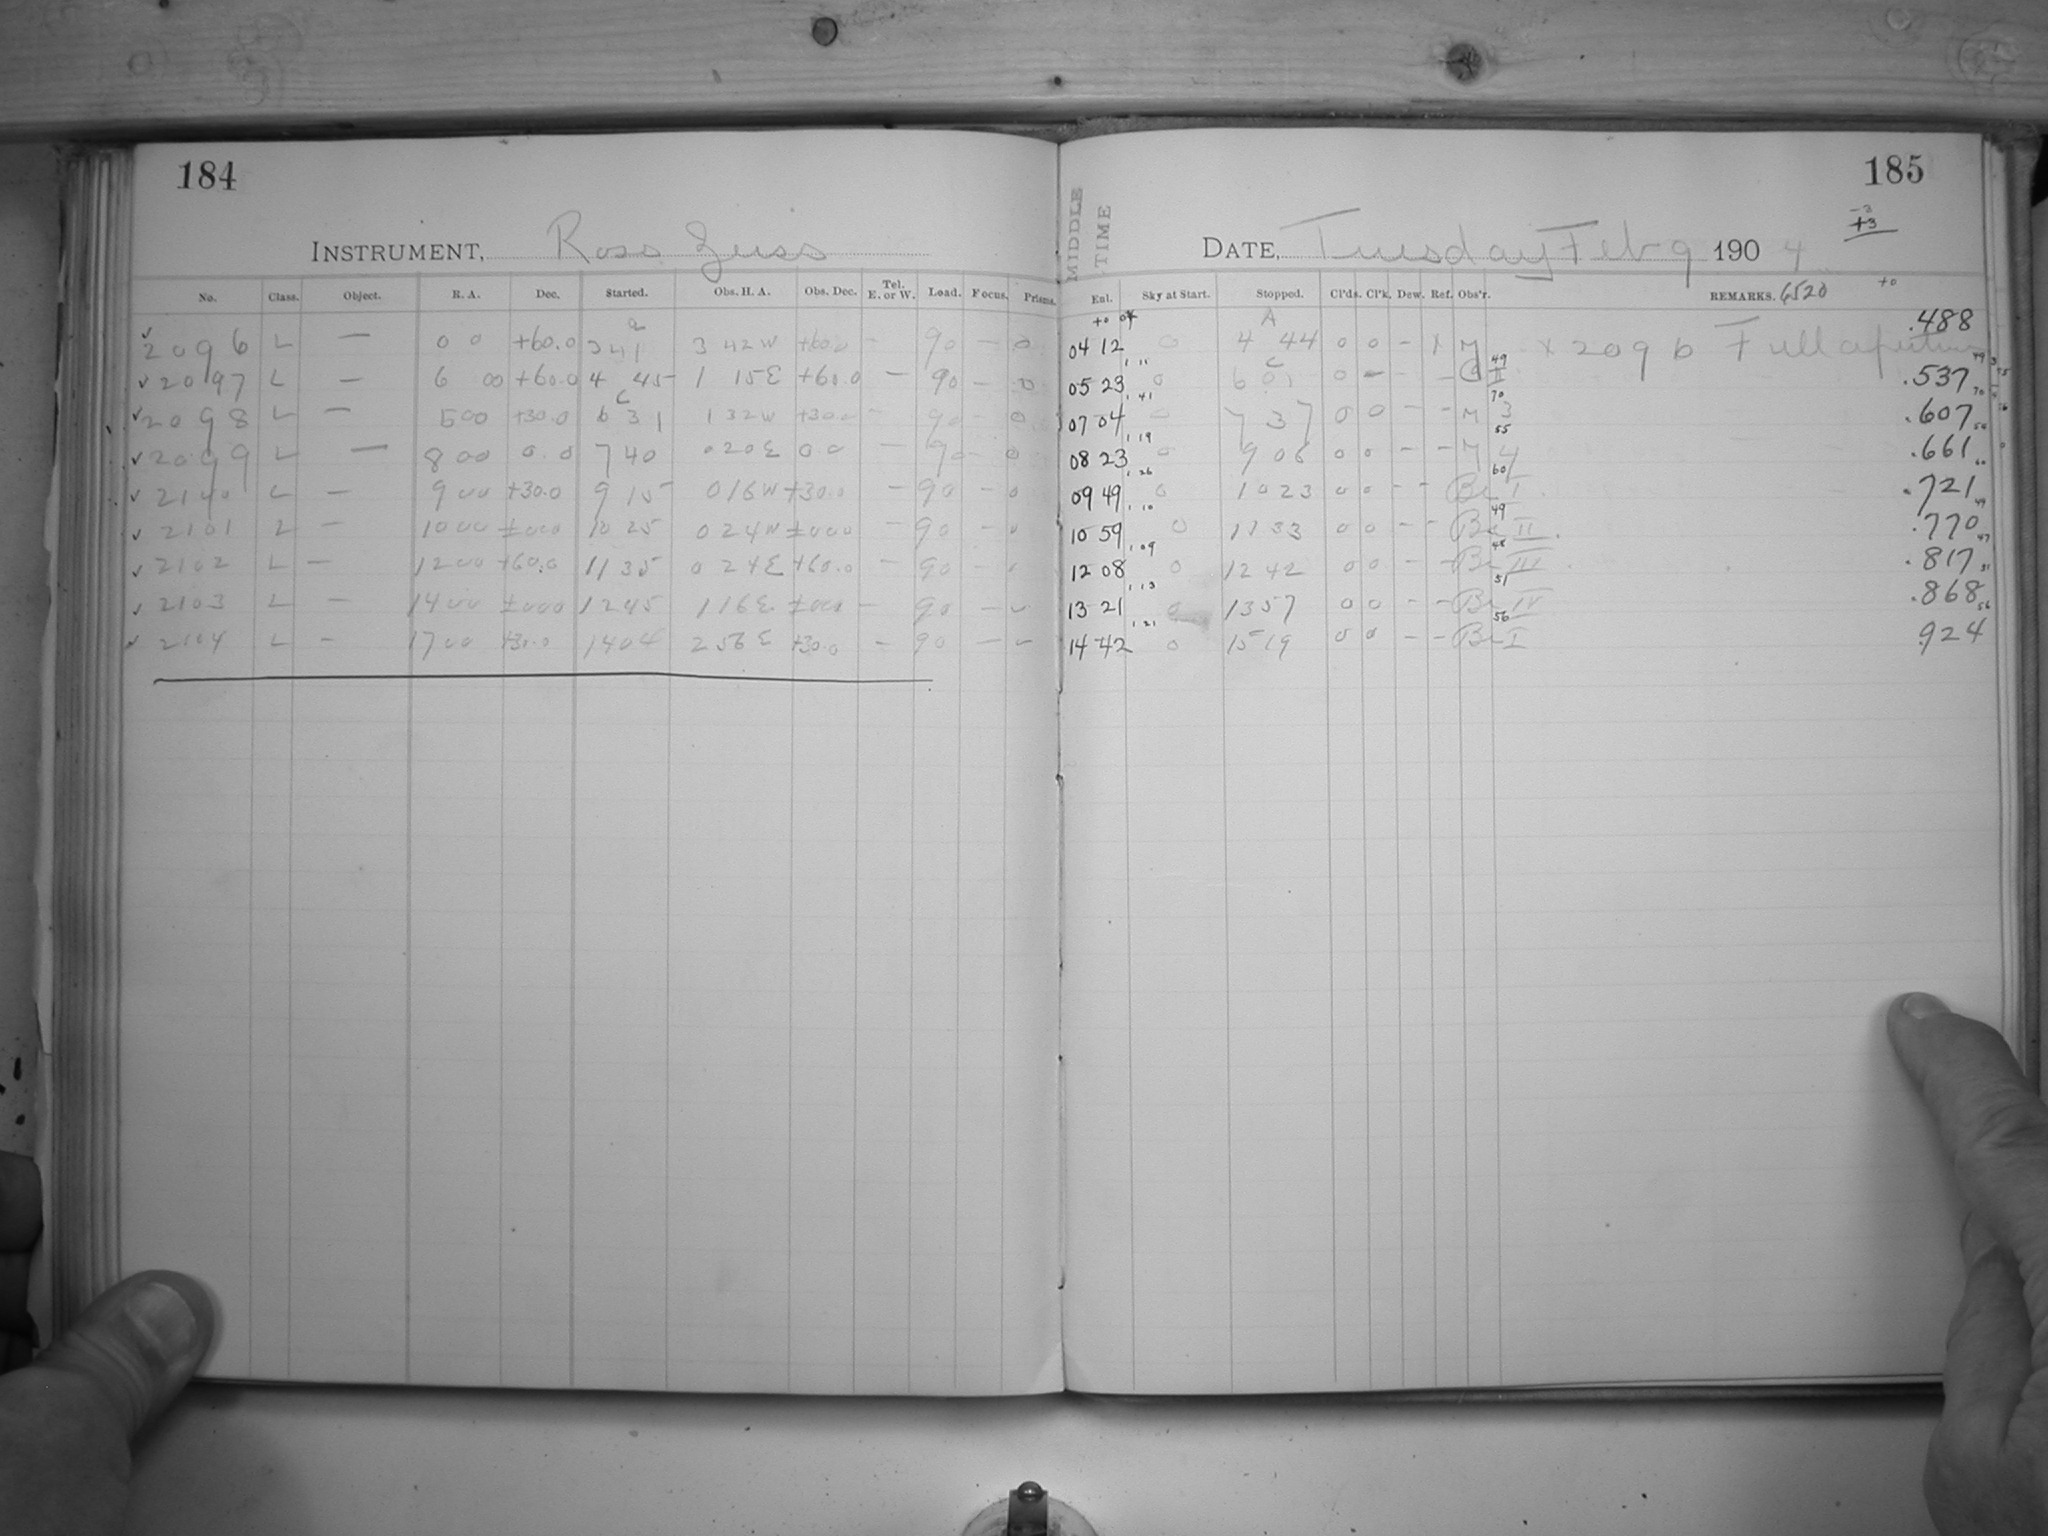 184
INSTRUMENT, Ross Zeiss
No. Class. Object. R. A. Dec. Started. Obs. H. A. Obs. Dec. Tel. E. or W. Load. Focus. Prisms.
2096 L — 0 0 +60.0 341 3 42 W +60.0 - 90 - 0
2097 L — 6 00 +60.0 4 45 1 15 E +60.0 — 90 - 0
2098 L — 5 00 +30.0 6 31 1 32 W +30.0 - 90 - 0
2099 L — 8 00 0.0 7 40 0 20 E 0 0 — 90 - 0
2140 L — 9 00 +30.0 9 15 0 16 W +30.0 - 90 - 0
2101 L - 10 00 ±000 10 25 0 24 W ±000 - 90 - 0
2102 L — 12 00 +60.0 11 35 0 24 E +60.0 - 90 -
2103 L — 14 00 ±000 12 45 1 16 E ±000 - 90 -
2104 L - 17 00 +30.0 14 04 2 56 E +30.0 - 90 —
185
-3
+3
MIDDLE TIME
DATE, Tuesday Feb 9 1904
Enl. Sky at Start. Stopped. Cl'ds. Cl'k. Dew. Ref. Obs'r. REMARKS. 6520 +0
+0 A .488
04 12 0 4 44 0 0 - X M X 2096 Full aperture
05 23 0 6 01 0 - - - II .537
07 04 0 7 37 0 0 - - M 3 .607
08 23 0 9 06 0 0 - - M 4 .661
09 49 0 10 23 0 0 - - Be I .721
10 59 0 11 33 0 0 - - Be II .770
12 08 0 12 42 0 0 - - Be III .817
13 21 0 13 57 0 0 - - Be IV .868
14 42 0 15 19 0 0 - - Be I .924